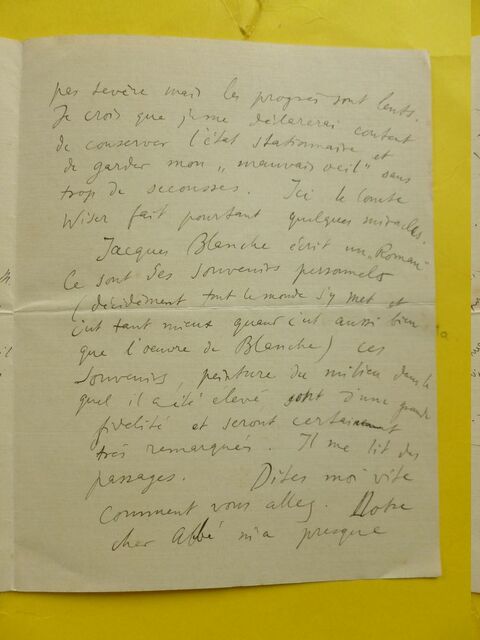 pas sevère mais les progrès sont lents.
Je crois que je me déclarerai content
de conserver l'état stationnaire et
de garder mon „mauvais oeil" sans
trop de secousses. Ici le Comte
Wiser fait pourtant quelques miracles.
Jacques Blanche écrit un „Roman"
Ce sont des souvenirs personnels
(décidément tout le monde s'y met et
c'est tant mieux quand c'est aussi bien
que l'oeuvre de Blanche) ces
souvenirs, peinture du milieu dans le
quel il a été élevé sont d'une grande
fidelité et seront certainement
très remarqués. Il me lit des
passages. Dites moi vite
comment vous allez. Notre
cher Abbé m'a presque